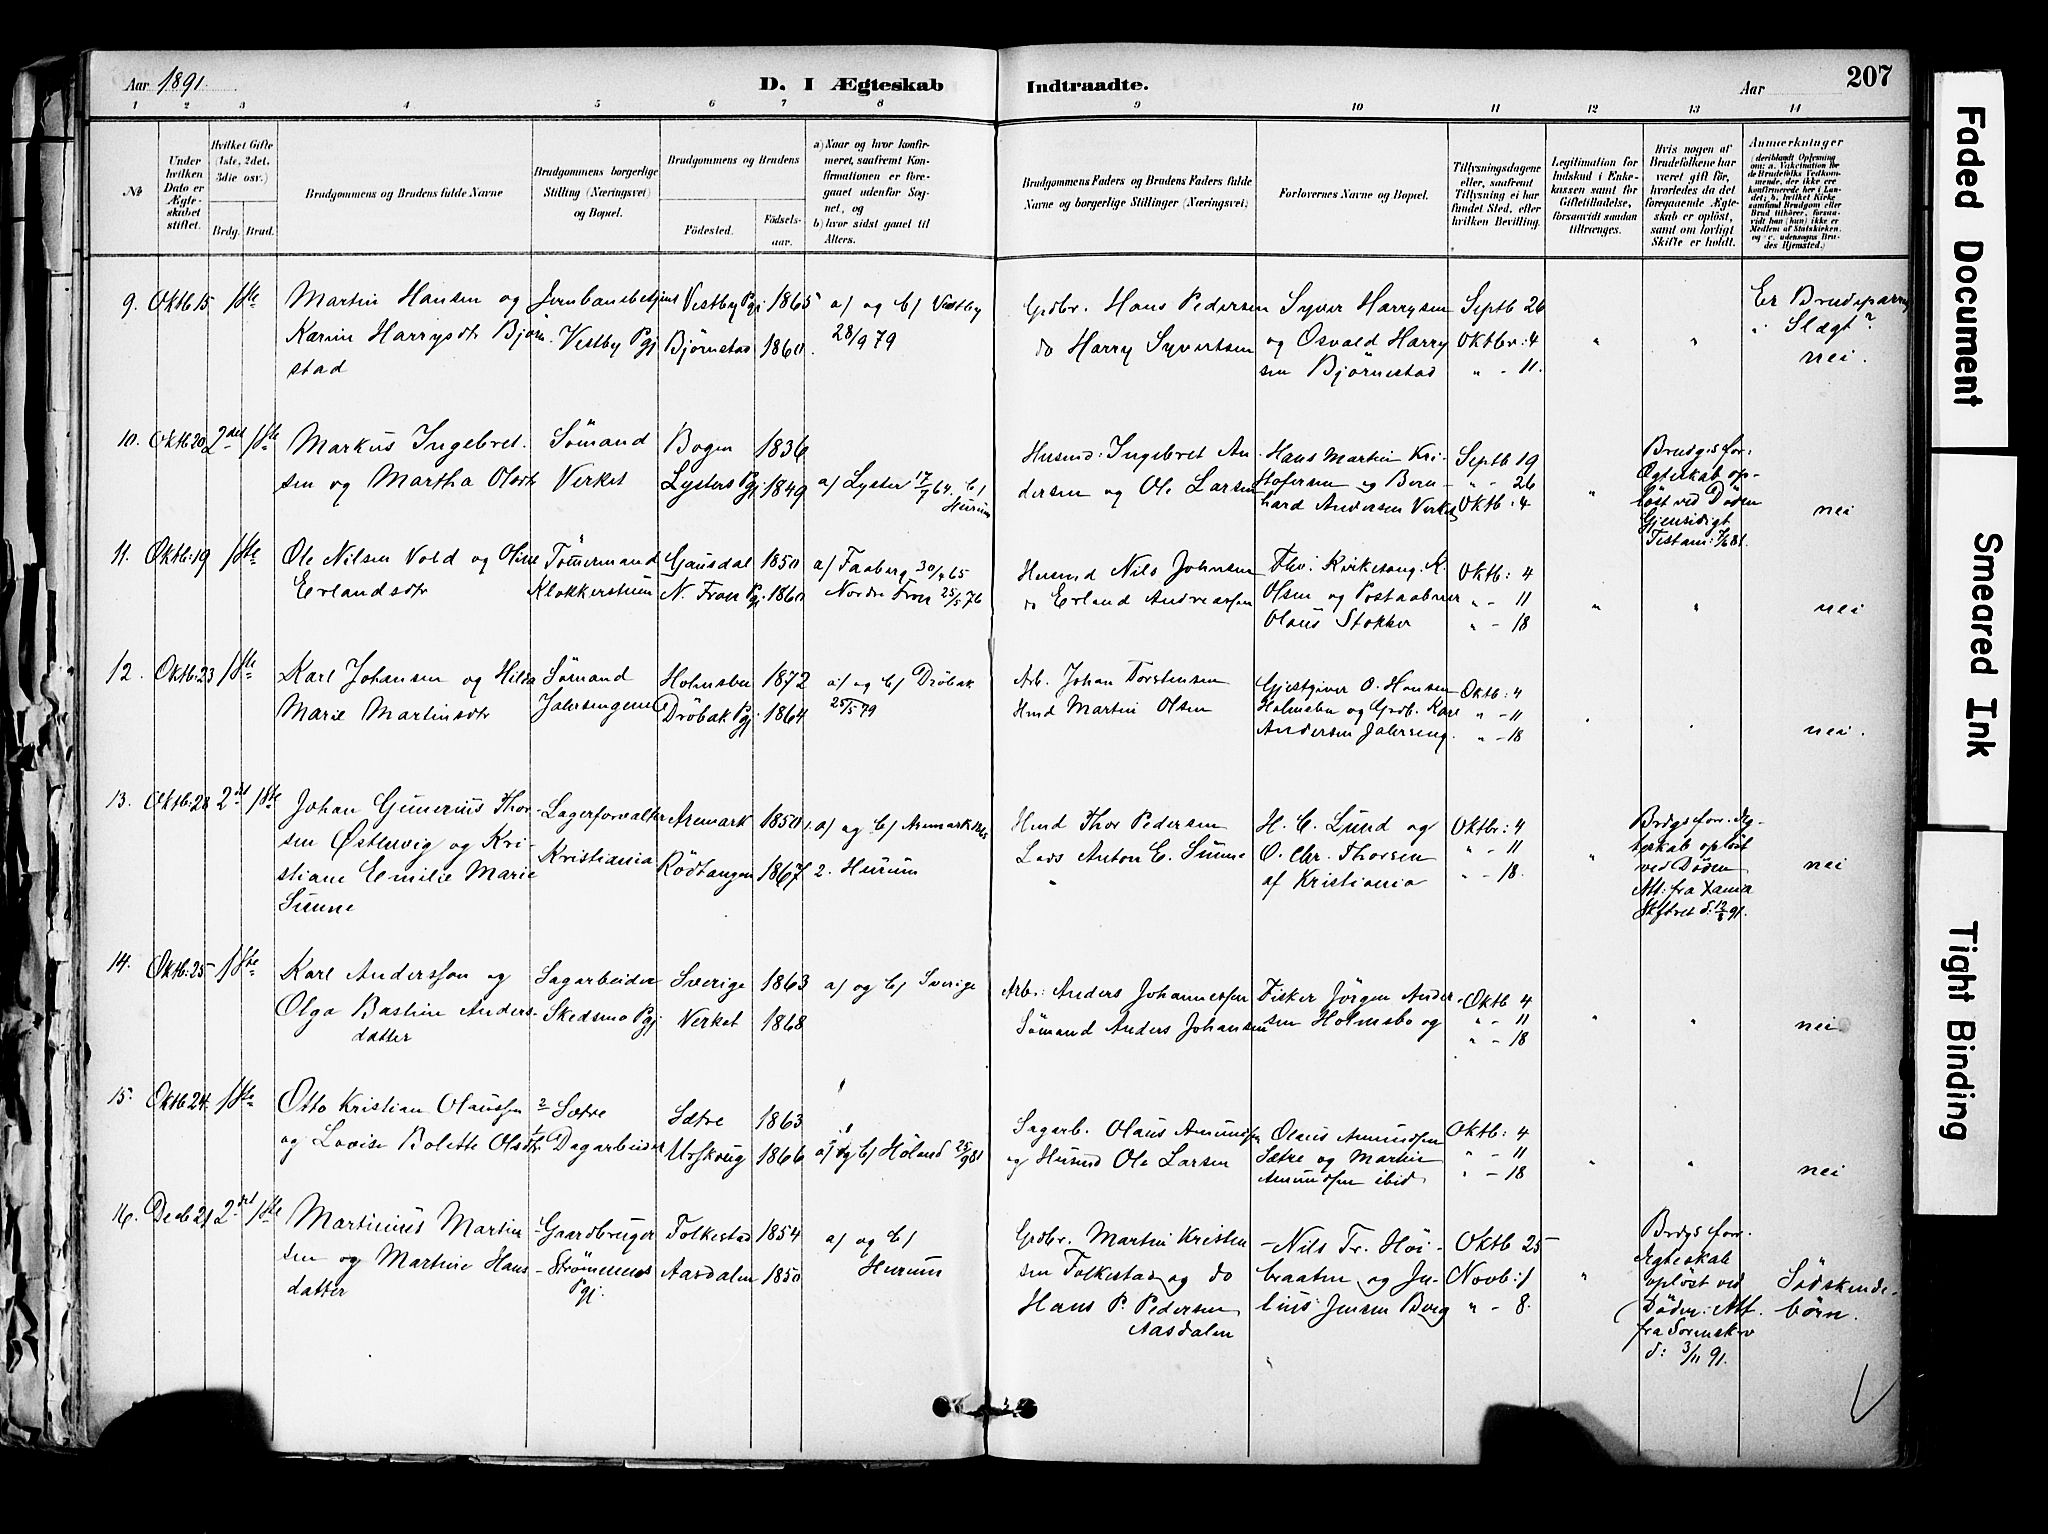 Aar 1891.
D. I Ægteskab Indtraadte.
Aar
207
1 2 3 4 5 6 7 8 9 10 11 12 13 14
No
Under hvilken Dato er Ægteskabet stiftet.
Hvilket Gifte (1ste, 2det, 3die osv.)
Brdg. Brud.
Brudgommens og Brudens fulde Navne
Brudgommens borgerlige Stilling (Næringsvei) og Bopæl.
Brudgommens og Brudens
Fødested.
Fødselsaar.
a) Naar og hvor konfirmeret, saafremt Konfirmationen er foregaaet udenfor Sognet, og
b) hvor sidst gaaet til Alters.
Brudgommens Faders og Brudens Faders fulde Navne og borgerlige Stillinger (Næringsvei)
Forlovernes Navne og Bopæl.
Tillysningsdagene eller, saafremt Tillysning ei har fundet Sted, efter hvilken Bevilling.
Legitimation for Indskud i Enkekassen samt for Giftetilladelse, forsaavidt saadan tiltrænges.
Hvis nogen af Brudefolkene har været gift før, hvorledes da det foregaaende Ægteskab er opløst, samt om lovligt Skifte er holdt.
Anmærkninger
9. Oktb 15 1ste
Martin Hansen og
Karine Harrysdtr Bjørnstad
Jernbanebetjent
Vestby Pgj
Vestby Pgj 1865
Bjørnestad 1860.
a) og b) Vestby
28/9 79
Grdbr. Hans Pedersen
do Harry Syvertsen
Syver Harrysen
og Osvald Harry
sen Bjørnestad
Septb 26
Oktbr: 4
" - 11.
Er Brudeparret
i Slægt?
nei.
10. Oktb 20 2det 1ste
Markus Ingebret
sen og Martha Olsdtr
Sømand
Verket
Bogen 1836
Lysters Pgj 1849
a) Lyster 17/7 64. b)
Hurum
Husmd: Ingebret An
dersen og Ole Larsen
Hans Martin Kri
stofersen og Bern
hard Andersen Verket
Septb 19
" - 26
Oktb: 4
Brudgs for:
Ægteskab op-
løst ved Døden
Gjensidigt
Testam:
nei
11. Oktb: 19 1ste
Ole Nilsen Vold og Oline
Erlandsdtr
Tømermand
Klokkerstuen
Gausdal 1850
N. Fron Pgj 1860
a) Faaberg 30/7 65
Nordre Fron 25/5 76
Husmd Nils Johnsen
do Erland Andreassen
Fhv. Kirkesang. K.
Olsen og Postaabner
Olaus Stokker
Oktb: 4
" - 11
" - 18
nei
12. Oktb: 23 1ste
Karl Johansen og Hilda
Marie Martinsdtr
Sømand
Jalersengene
Holmsbu 1872
Drøbak Pgj. 1864
a) og b) Drøbak
25/5 79
Arb. Johan Torstensen
Hmd Martin Olsen
Gjestgiver O. Hansen
Holmsbu og Grdb. Karl
Andersen Jalerseng.
Oktb: 4
" - 11
" - 18
nei.
13. Oktb: 28 2det 1ste
Johan Gunerius Thor
sen Østervig og Kri-
stiane Emilie Marie
Sunne
Lagerforvalter
Kristiania
Aremark 1850
Rødtangen 1867
1. a) og b) Aremark 1865
2. Hurum
Hmd Thor Pedersen
Lods Anton E. Sunne
H. C. Lund og
O. Chr. Thorsen
af Kristiania
Oktbr: 4
" - 11
" - 18.
Brdgs forr. Æg-
teskab opløst
ved Døden
Att: fra Xania
Skfteret d: 12/8 91.
nei
14. Oktb: 25 1ste
Karl Andersson og
Olga Bastine Anders-
datter
Sagarbeider
Skedsmo Pgj
Sverige 1863
Verket 1868
a) og b) Sverige
Arb: Anders Johannessen
Sømand Anders Johansen
Fisker Jørgen Ander-
sen Holmsbo og
Oktb 4
" - 11
" - 18
nei
15. Oktb 24. 1ste
Otto Kristian Olaussen
og Lovise Bolette Olsdtr.
2 Sætre
1 Dagarbeider
Sætre 1863
Urskoug 1866
a) og b) Høland 25/9 81
Sagarb. Olaus Amundsen
og Husmd Ole Larsen
Olaus Amundsen
Sætre og Martin
Amundsen ibid
Oktb: 4
" - 11
" - 18
nei
16. Decb 21 2det 1ste
Martinius Martin
sen og Martine Hans
datter
Gaardbruger
Strømmens
Pgj.
Folkestad 1854
Aasdalen 1850
a) og b)
Hurum
Grdbr. Martin Kristen
sen Folkestad og do
Hans P. Pedersen
Aasdalen
Nils Fr. Høi-
braaten og Ju-
lius Jensen Berg
Oktb 25
Novb: 1
" - 8.
Brdgs forr.
Ægteskab
opløst ved
Døden: Att.
fra Sorenskrv
d: 3/11 91.
Södskende-
børn.
Faded Document
Smeared Ink
Tight Binding